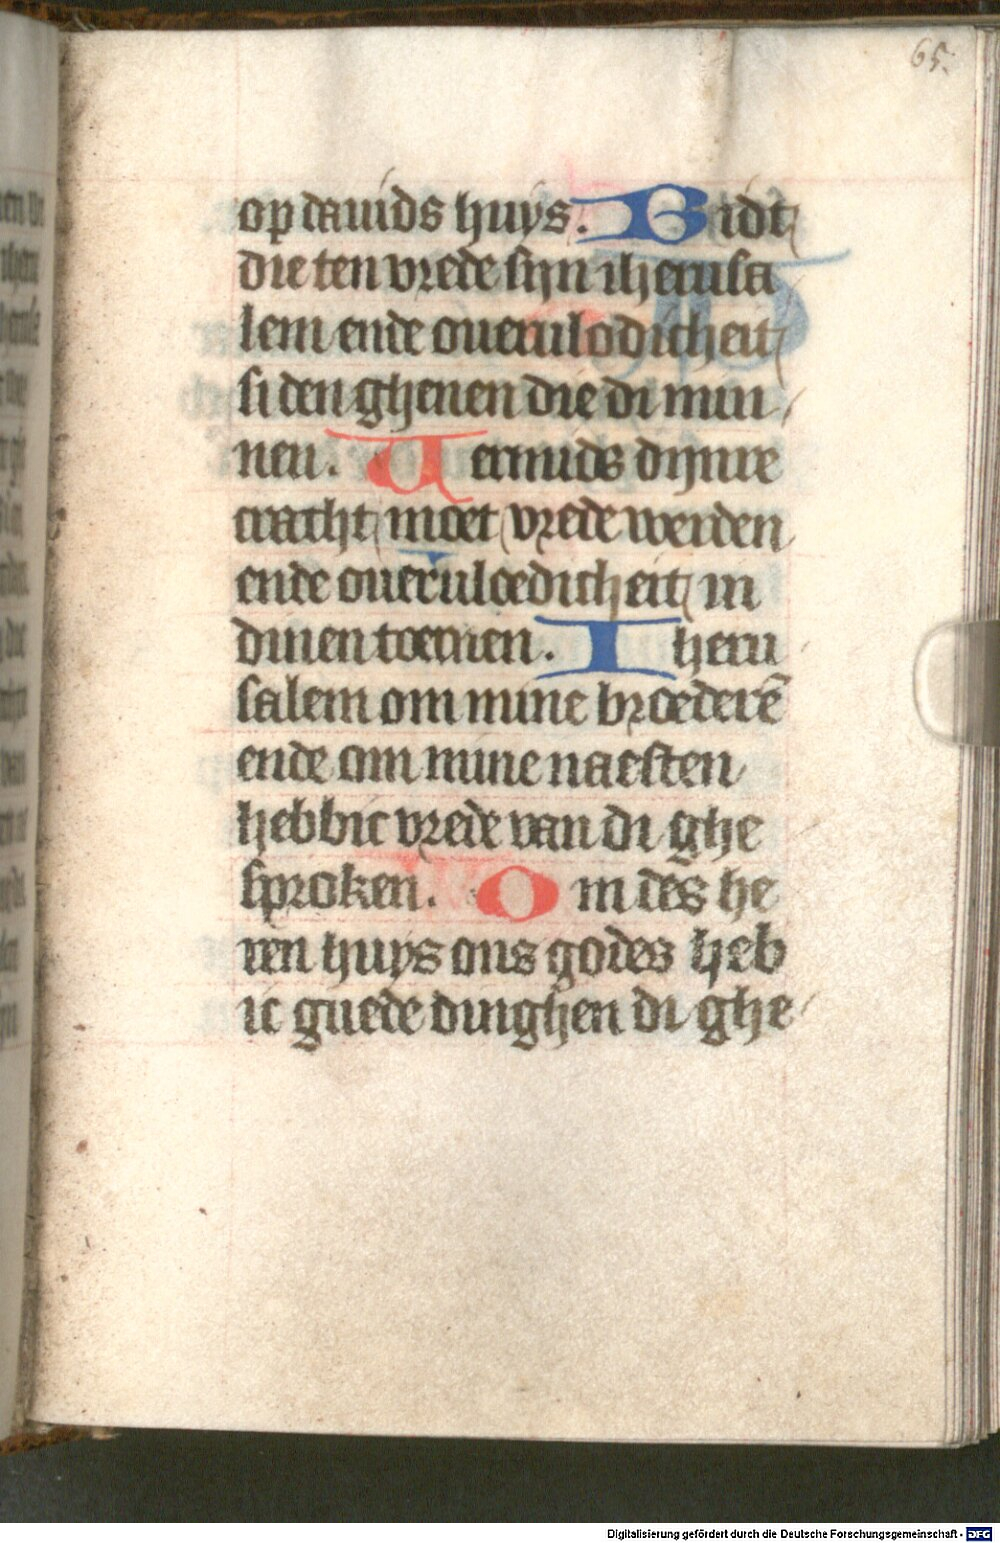 65.
op dauids huys. Bidt
die ten vrede sijn iherusa
lem ende ouerulodicheit
si den ghenen die di min
nen. Uermids dijnre
cracht moet vrede werden
ende oueruloedicheit in
dinen toernen. Iheru
salem om mine broederē
ende om mine naesten
hebbic vrede van di ghe
sproken. Om des he
ren huys ons godes heb
ic guede dinghen di ghe
Digitalisierung gefördert durch die Deutsche Forschungsgemeinschaft - DFG